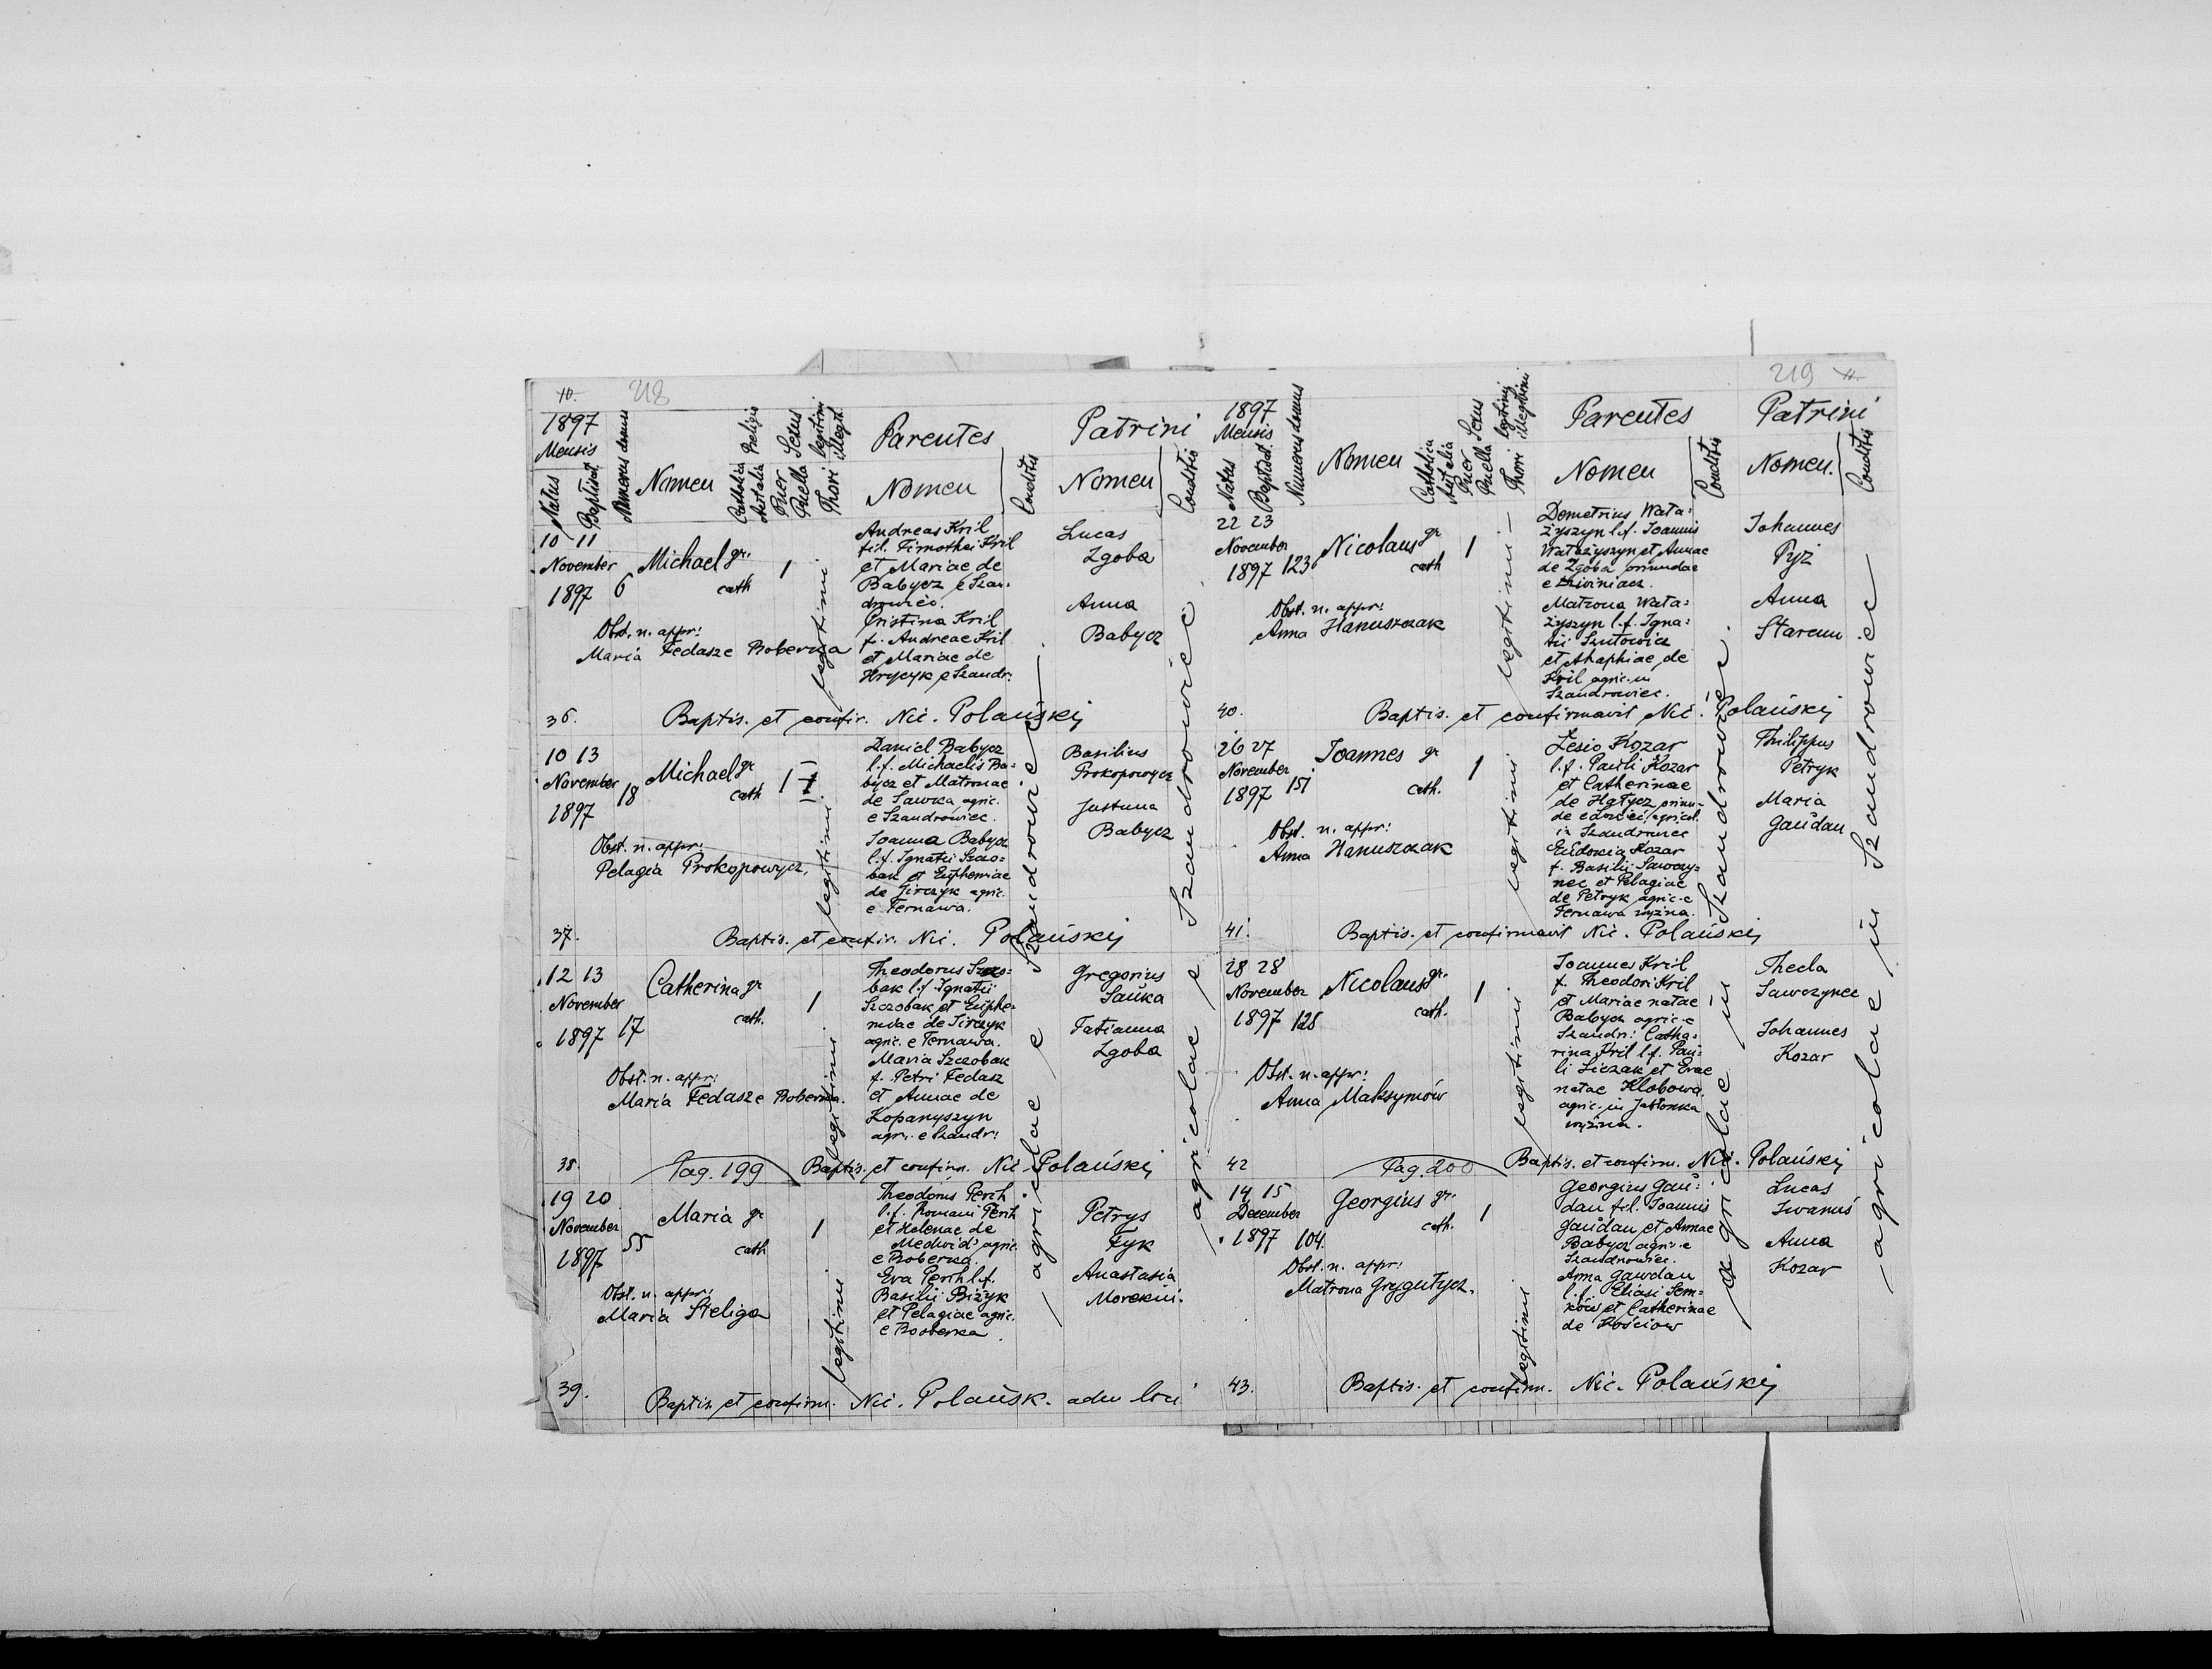 10. 218
1897
Mensis
Natus
Baptisat.
Numerus domus
Nomen
Religio
Catholica
Aut alia
Sexus
Puer
Puella
Thori
legitimi
illegit.
Parentes
Nomen
Conditio
Patrini
Nomen
Conditio
10 11
November
1897 6
Michael gr.
cath
1
legitimi
Andreas Kril
fil. Timothei Kril
et Mariae de
Babycz e Szan-
drowiec.
Cristina Kril
f. Andreae Kril
et Mariae de
Hrycyk e Szandr:
Lucas
Zgoba
Anna
Babycz
Obst. n. appr:
Maria Fedasz e Boberka
36. Baptis. et confir. Nic. Polańskij
10 13
November
1897 18
Michael gr
cath
1
legitimi
Daniel Babycz
l.f. Michaelis Ba-
bycz et Matronae
de Sawka agric.
e Szandrowiec.
Joanna Babycz
l.f. Ignatii Szczo-
bak et Euphemiae
de Jirczyk agric.
e Ternawa.
Basilius
Prokopowycz
Justina
Babycz
Obst. n. appr:
Pelagia Prokopowycz.
37. Baptis. et confir. Nic. Polańskij
12 13
November
1897 17
Catherina gr
cath.
1
legitimi
Theodorus Szczo-
bak l.f. Ignatii
Szczobak et Euphe-
miae de Jirczyk
agric. e Ternawa.
Maria Szczobak
f. Petri Fedasz
et Annae de
Kopanyszyn
agr. e Szandr:
Gregorius
Sauka
Tatianna
Zgoba
Obst. n. appr:
Maria Fedasz e Boberka.
38. Pag. 199 Baptis. et confirm. Nic. Polańskij
19 20
November
1897 55
Maria gr
cath
1
legitimi
Theodorus Perih
l.f. Romani Perih
et Helenae de
Medwid' agric.
e Boberka.
Eva Perih l.f.
Basilii Biżyk
et Pelagiae agric.
e Boberka.
Petrys
Fyk
Anastasia
Obst. n. appr:
Maria Steliga
agricolae e Szandrowiec
agricolae e Szandrowiec
39. Baptis. et confirm. Nic. Polańsk. adm loci
219 11.
1897
Mensis
Natus
Baptisat.
Numerus domus
Nomen
Catholica
Aut alia
Sexus
Puer
Puella
Thori
legitimi
illegitimi
Parentes
Nomen
Conditio
Patrini
Nomen.
Conditio
22 23
November
1897 123
Nicolaus gr
cath
1
legitimi
Demetrius Wata-
żyszyn l.f. Joannis
Watażyszyn et Annae
de Zgoba oriundae
Matrona Wata-
żyszyn l.f. Igna-
tii Szutowicz
et Ahaphiae de
Kril agric. in
Szandrowiec.
Johannes
Pyż
Anna
Obst. n. appr:
Anna Hanuszczak
40. Baptis. et confirmavit Nic. Polańskij
26 27
November
1897 151
Joannes gr
cath.
1
legitimi
Lesio Kozar
l.f. Pauli Kozar
et Catherinae
de Hałycz oriun-
in Szandrowiec
Eudocia Kozar
f. Basilii Sawczy-
nec et Pelagiae
de Petryk agric. e
Ternawa wyżna.
Philippus
Petryk
Maria
Gaudan
Obst. n. appr:
Anna Hanuszczak
41. Baptis. et confirmavit Nic. Polańskij
28 28
November
1897 128
Nicolaus gr.
cath.
1
legitimi
Joannes Kril
f. Theodori Kril
et Mariae natae
Babycz agric. e
Szandr: Catha-
rina Kril l.f. Pau-
li Siczak et Evae
natae Klobowa
agric. in Jabłonka
wyżna.
Thecla
Sawczynec
Johannes
Kozar
Obst. n. appr:
Anna Maksymów
42 Pag. 200 Baptis. et confirm. Nic. Polańskij
14 15
December
1897 104.
Georgius gr.
cath.
1
legitimi
Georgius Gau-
dan fil. Joannis
Gaudan et Annae
Babycz agric. e
Szandrowiec.
Anna Gawdan
l.f. Eliasi Sem-
ków et Catherinae
de Kościow
Lucas
Iwanus
Anna
Kozar
Obst. n. appr:
Matrona Grygutycz.
agricolae in Szandrowiec.
agricolae in Szandrowiec
43. Baptis. et confirm. Nic. Polańskij